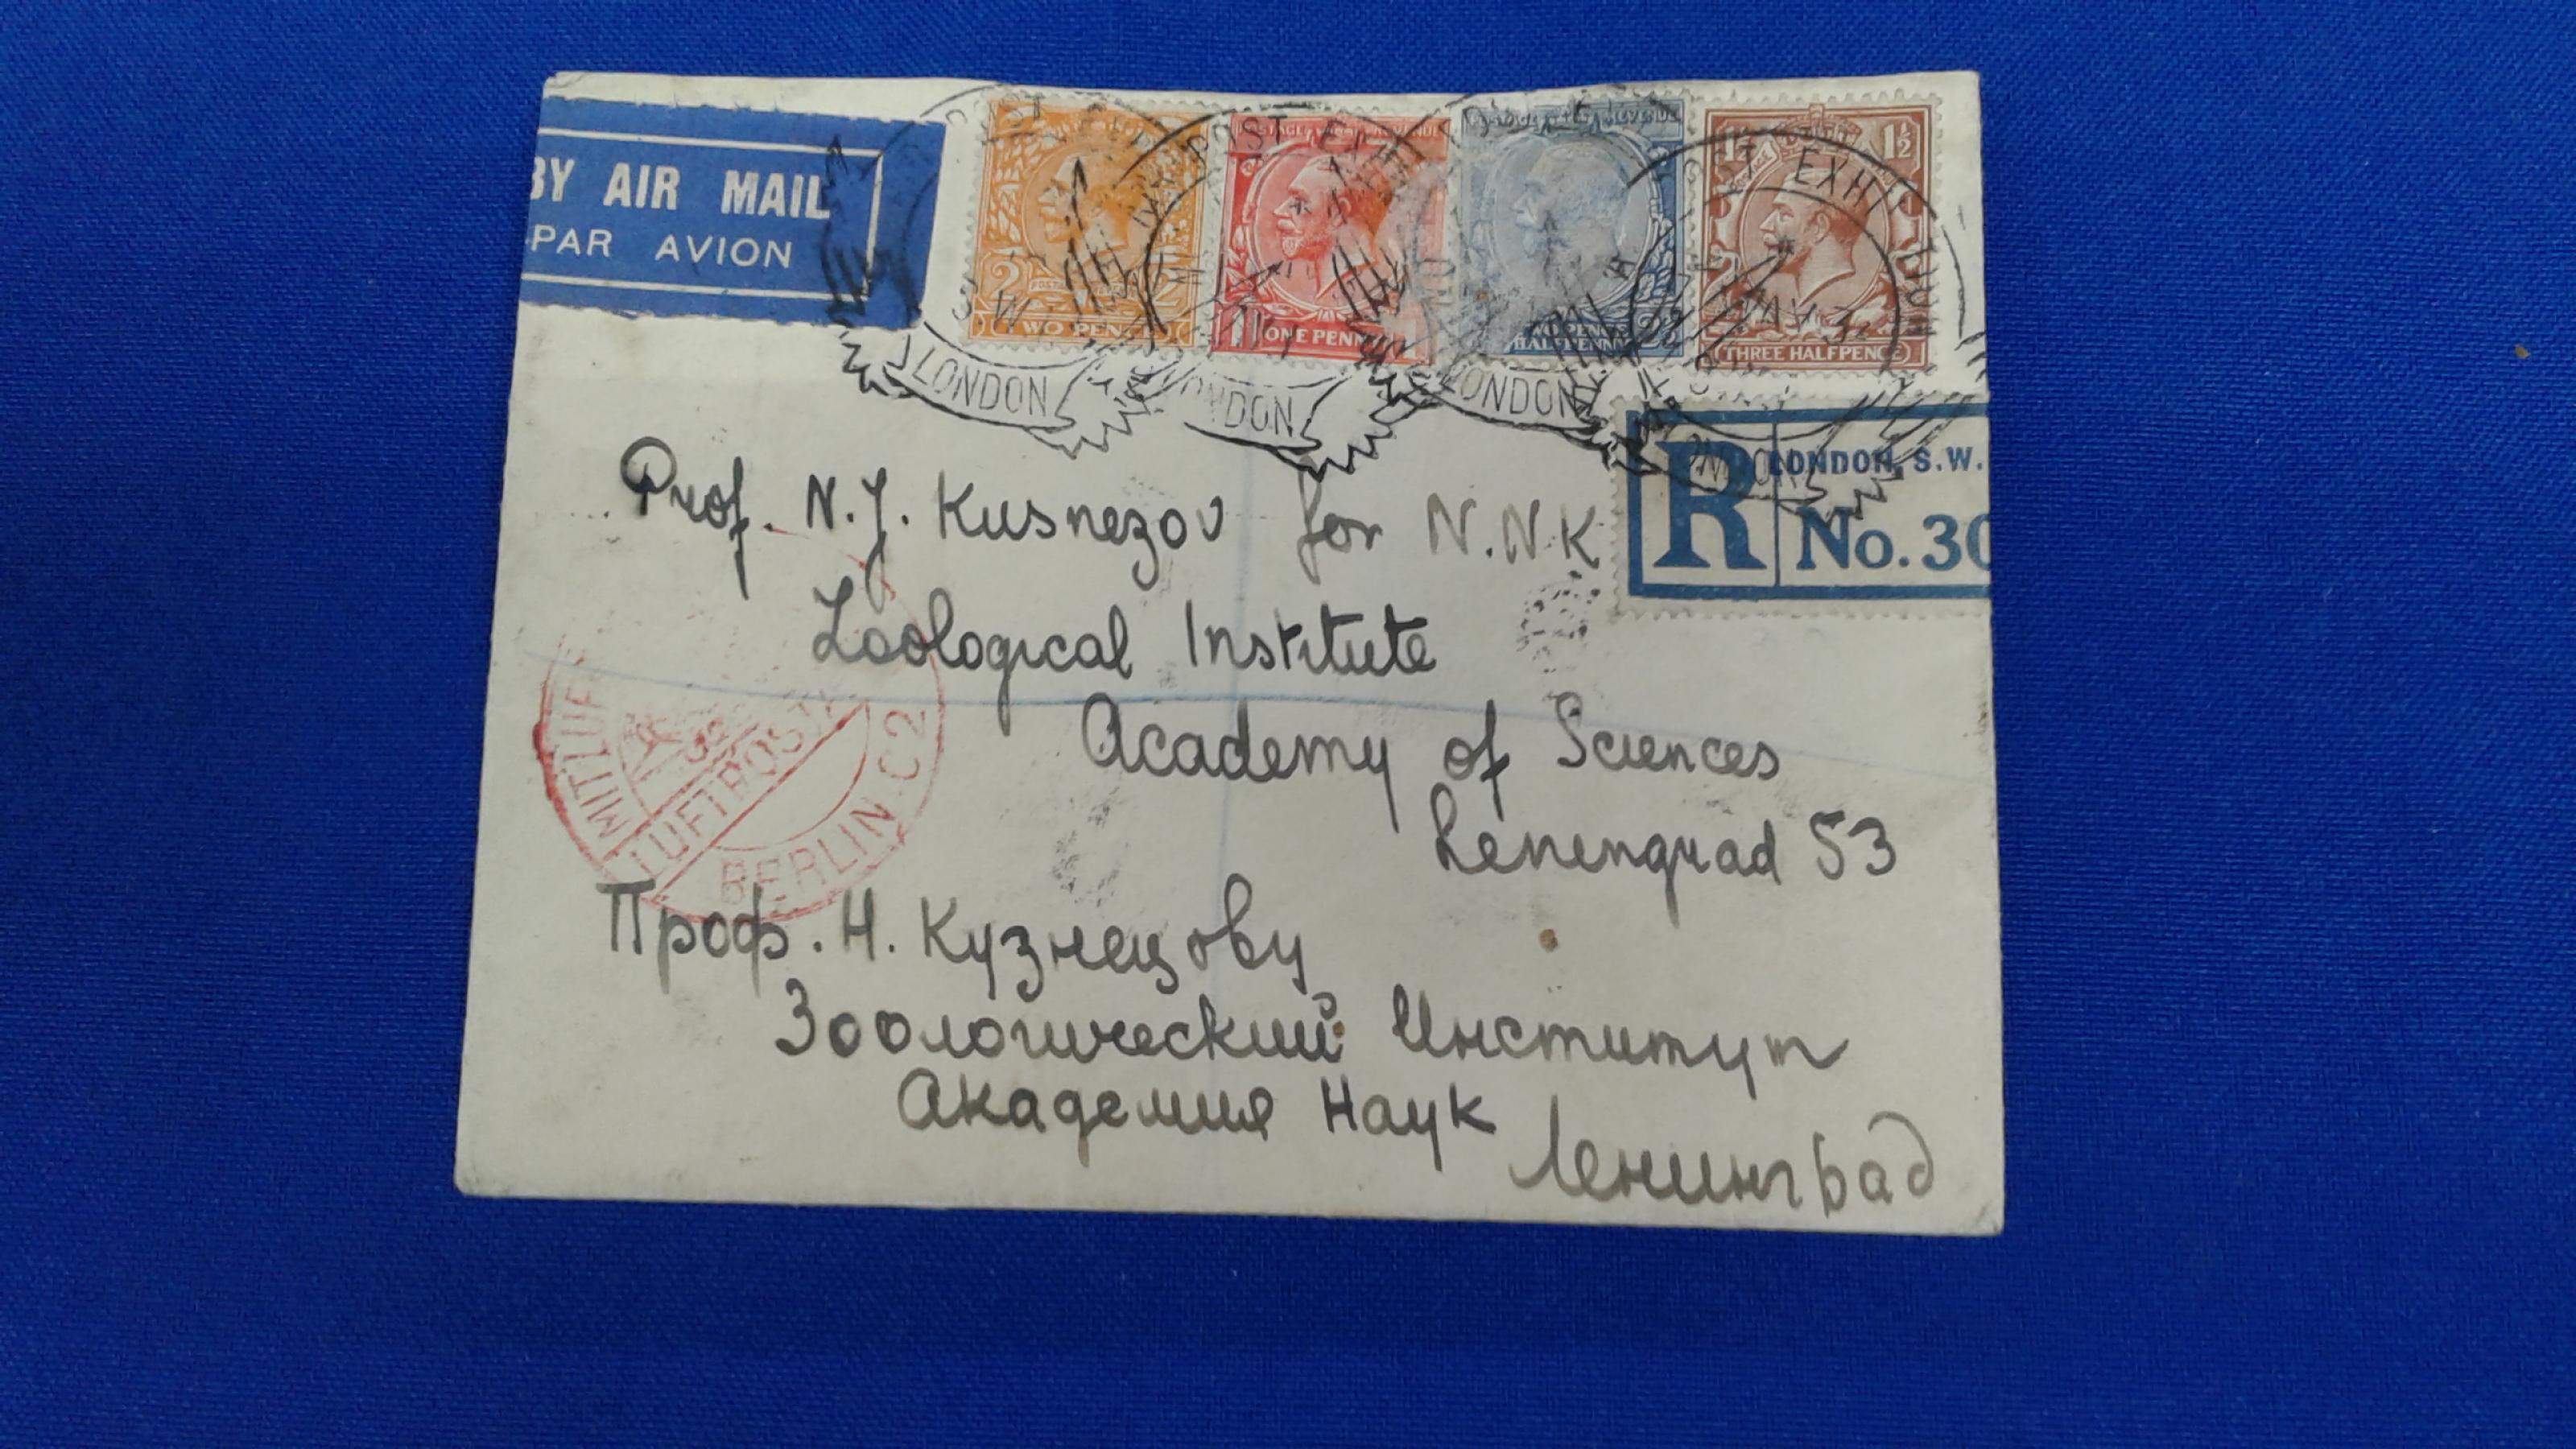 BY AIR MAIL
PAR AVION
TWO PENCE
ONE PENNY
HALFPENNY
1½ 1½
THREE HALFPENCE
POST EXHIBITION
MAY 32
LONDON
LONDON
LONDON
R LONDON, S.W.
No. 30
Prof. N.J. Kusnezov for N.N.K
Zoological Institute
Academy of Sciences
Leningrad 53
LUFTPOST
BERLIN C2
Проф. Н. Кузнецову
Зоологический Институт
Академия Наук
Ленинград